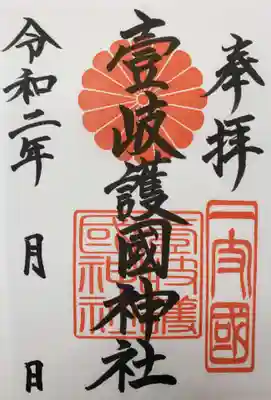 奉拝
一支國
壹岐護國神社
壱岐護國神社
令和二年 月 日